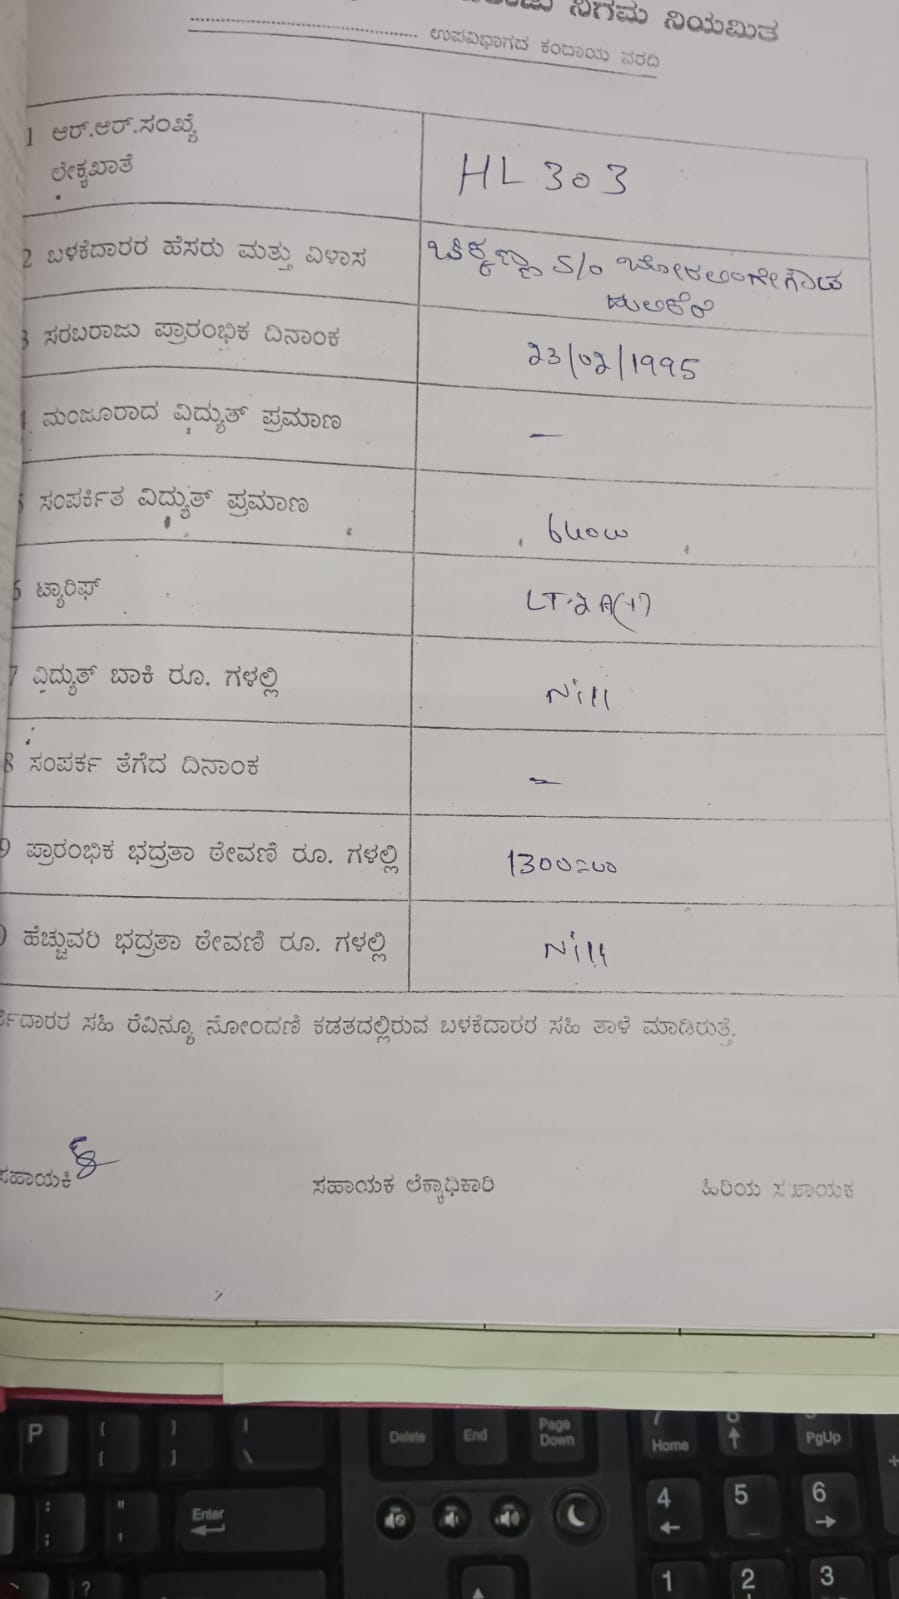 ನಿಗಮ ನಿಯಮಿತ
ಉಪವಿಭಾಗದ ಕಂದಾಯ ವರದಿ
1 ಆರ್.ಆರ್.ಸಂಖ್ಯೆ
ಲೇಕ್ಕಖಾತೆ
HL 303
2 ಬಳಕೆದಾರರ ಹೆಸರು ಮತ್ತು ವಿಳಾಸ
ಚಿಕ್ಕಣ್ಣ S/o
3 ಸರಬರಾಜು ಪ್ರಾರಂಭಿಕ ದಿನಾಂಕ
23/02/1995
4 ಮಂಜೂರಾದ ವಿದ್ಯುತ್ ಪ್ರಮಾಣ
–
5 ಸಂಪರ್ಕಿತ ವಿದ್ಯುತ್ ಪ್ರಮಾಣ
640w
6 ಟ್ಯಾರಿಫ್
LT-2A(+)
7 ವಿದ್ಯುತ್ ಬಾಕಿ ರೂ. ಗಳಲ್ಲಿ
Nill
8 ಸಂಪರ್ಕ ತೆಗೆದ ದಿನಾಂಕ
–
9 ಪ್ರಾರಂಭಿಕ ಭದ್ರತಾ ಠೇವಣಿ ರೂ. ಗಳಲ್ಲಿ
1300=00
0 ಹೆಚ್ಚುವರಿ ಭದ್ರತಾ ಠೇವಣಿ ರೂ. ಗಳಲ್ಲಿ
Nill
ಸಹಿ ರೆವಿನ್ಯೂ ನೋಂದಣಿ ಕಡತದಲ್ಲಿರುವ ಬಳಕೆದಾರರ ಸಹಿ ತಾಳೆ ಮಾಡಿರುತ್ತೆ.
ಸಹಾಯಕಿ ಸಹಾಯಕ ಲೆಕ್ಕಾಧಿಕಾರಿ ಹಿರಿಯ ಸಹಾಯಕ
P { } | Delete End Page Down 7 Home 8 PgUp
[ ] \
: " Enter 4 5 6
; '
? 1 2 3